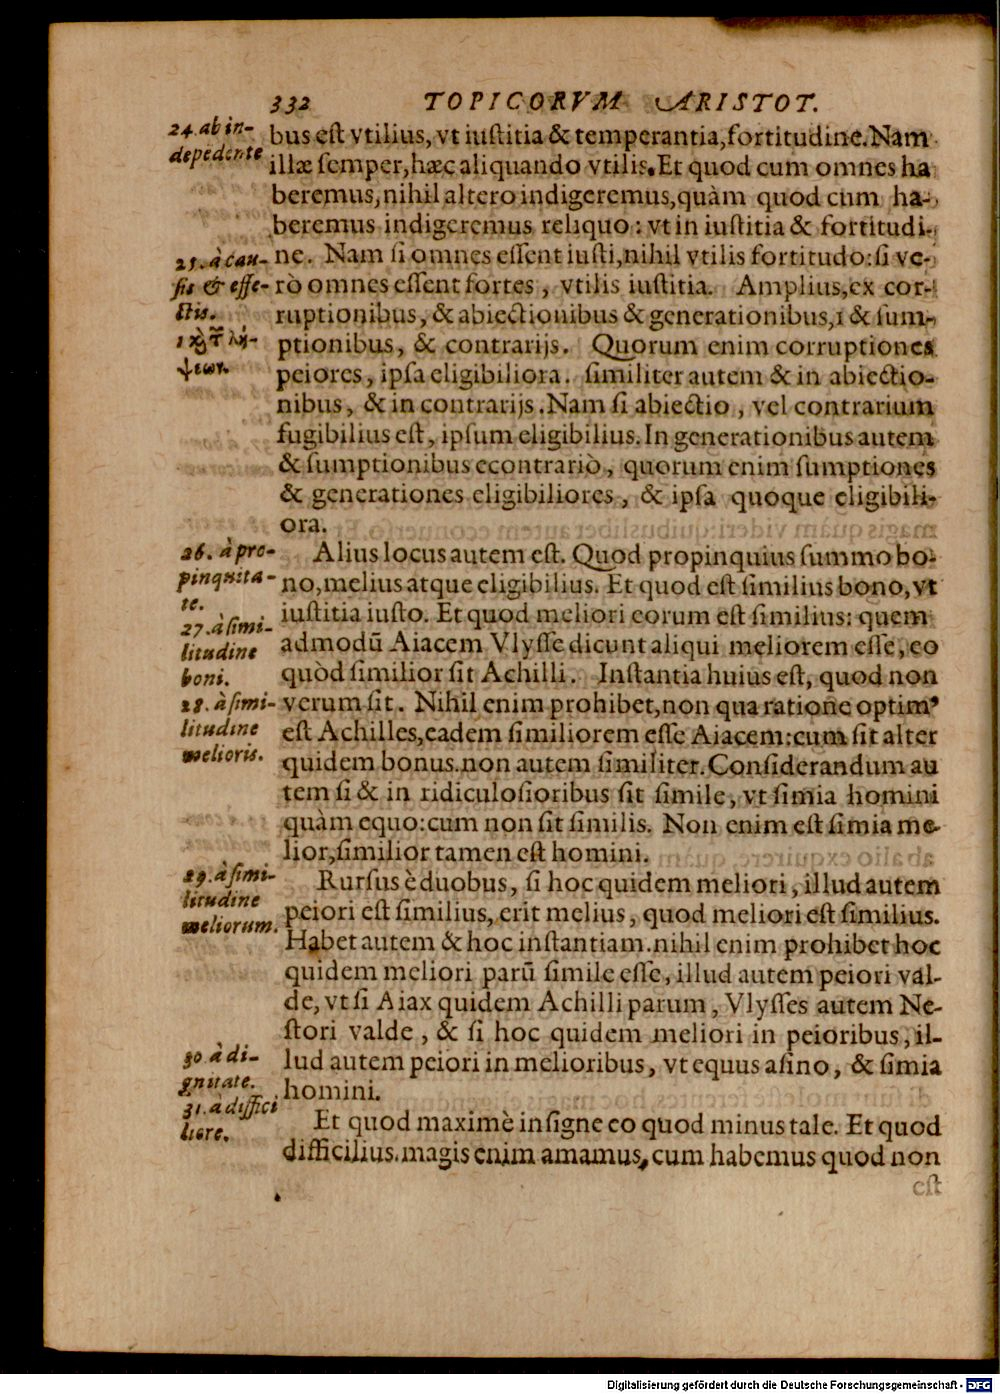 332 TOPICORVM ARISTOT.
24. ab in-
depēdente
bus est vtilius, vt iustitia & temperantia, fortitudine. Nam
illæ semper, hæc aliquando vtilis. Et quod cum omnes ha
beremus, nihil altero indigeremus, quàm quod cum ha-
beremus indigeremus reliquo: vt in iustitia & fortitudi-
25. à cau-
sis & effe-
ctis.
ne. Nam si omnes essent iusti, nihil vtilis fortitudo: si ve-
rò omnes essent fortes, vtilis iustitia. Amplius, ex cor-
ruptionibus, & abiectionibus & generationibus, 1 & sum-
ptionibus, & contrarijs. Quorum enim corruptiones
peiores, ipsa eligibiliora. similiter autem & in abiectio-
nibus, & in contrarijs. Nam si abiectio, vel contrarium
fugibilius est, ipsum eligibilius. In generationibus autem
& sumptionibus econtrariò, quorum enim sumptiones
& generationes eligibiliores, & ipsa quoque eligibili-
ora.
26. à pro-
pinquita-
te.
Alius locus autem est. Quod propinquius summo bo-
no, melius atque eligibilius. Et quod est similius bono, vt
27. à simi-
litudine
boni.
iustitia iusto. Et quod meliori eorum est similius: quem
admodū Aiacem Vlysse dicunt aliqui meliorem esse, eo
quòd similior sit Achilli. Instantia huius est, quod non
28. à simi-
litudine
melioris.
verum sit. Nihil enim prohibet, non qua ratione optimꝰ
est Achilles, eadem similiorem esse Aiacem: cum sit alter
quidem bonus. non autem similiter. Considerandum au
tem si & in ridiculosioribus sit simile, vt simia homini
quàm equo: cum non sit similis. Non enim est simia me-
lior, similior tamen est homini.
29. à simi-
litudine
meliorum.
Rursus è duobus, si hoc quidem meliori, illud autem
peiori est similius, erit melius, quod meliori est similius.
Habet autem & hoc instantiam. nihil enim prohibet hoc
quidem meliori parū simile esse, illud autem peiori val-
de, vt si Aiax quidem Achilli parum, Vlysses autem Ne-
stori valde, & si hoc quidem meliori in peioribus, il-
lud autem peiori in melioribus, vt equus asino, & simia
homini.
30. à di-
gnitate.
31. à diffici
liore.
Et quod maximè insigne eo quod minus tale. Et quod
difficilius. magis enim amamus, cum habemus quod non
est
Digitalisierung gefördert durch die Deutsche Forschungsgemeinschaft - DFG